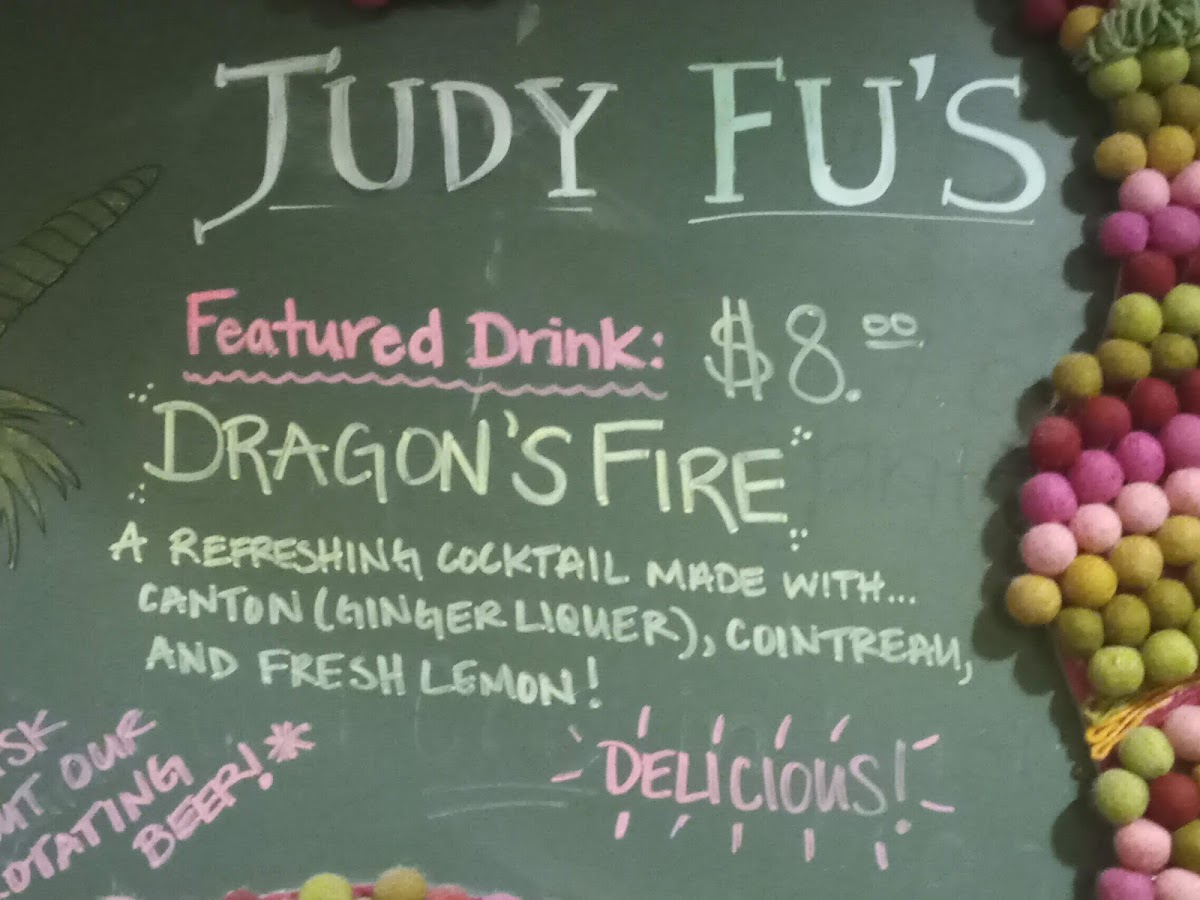 JUDY FU'S
Featured Drink: $8.00
DRAGON'S FIRE
A REFRESHING COCKTAIL MADE WITH...
CANTON (GINGER LIQUER), COINTREAU,
AND FRESH LEMON!
DELICIOUS!
OUR
BEER!*